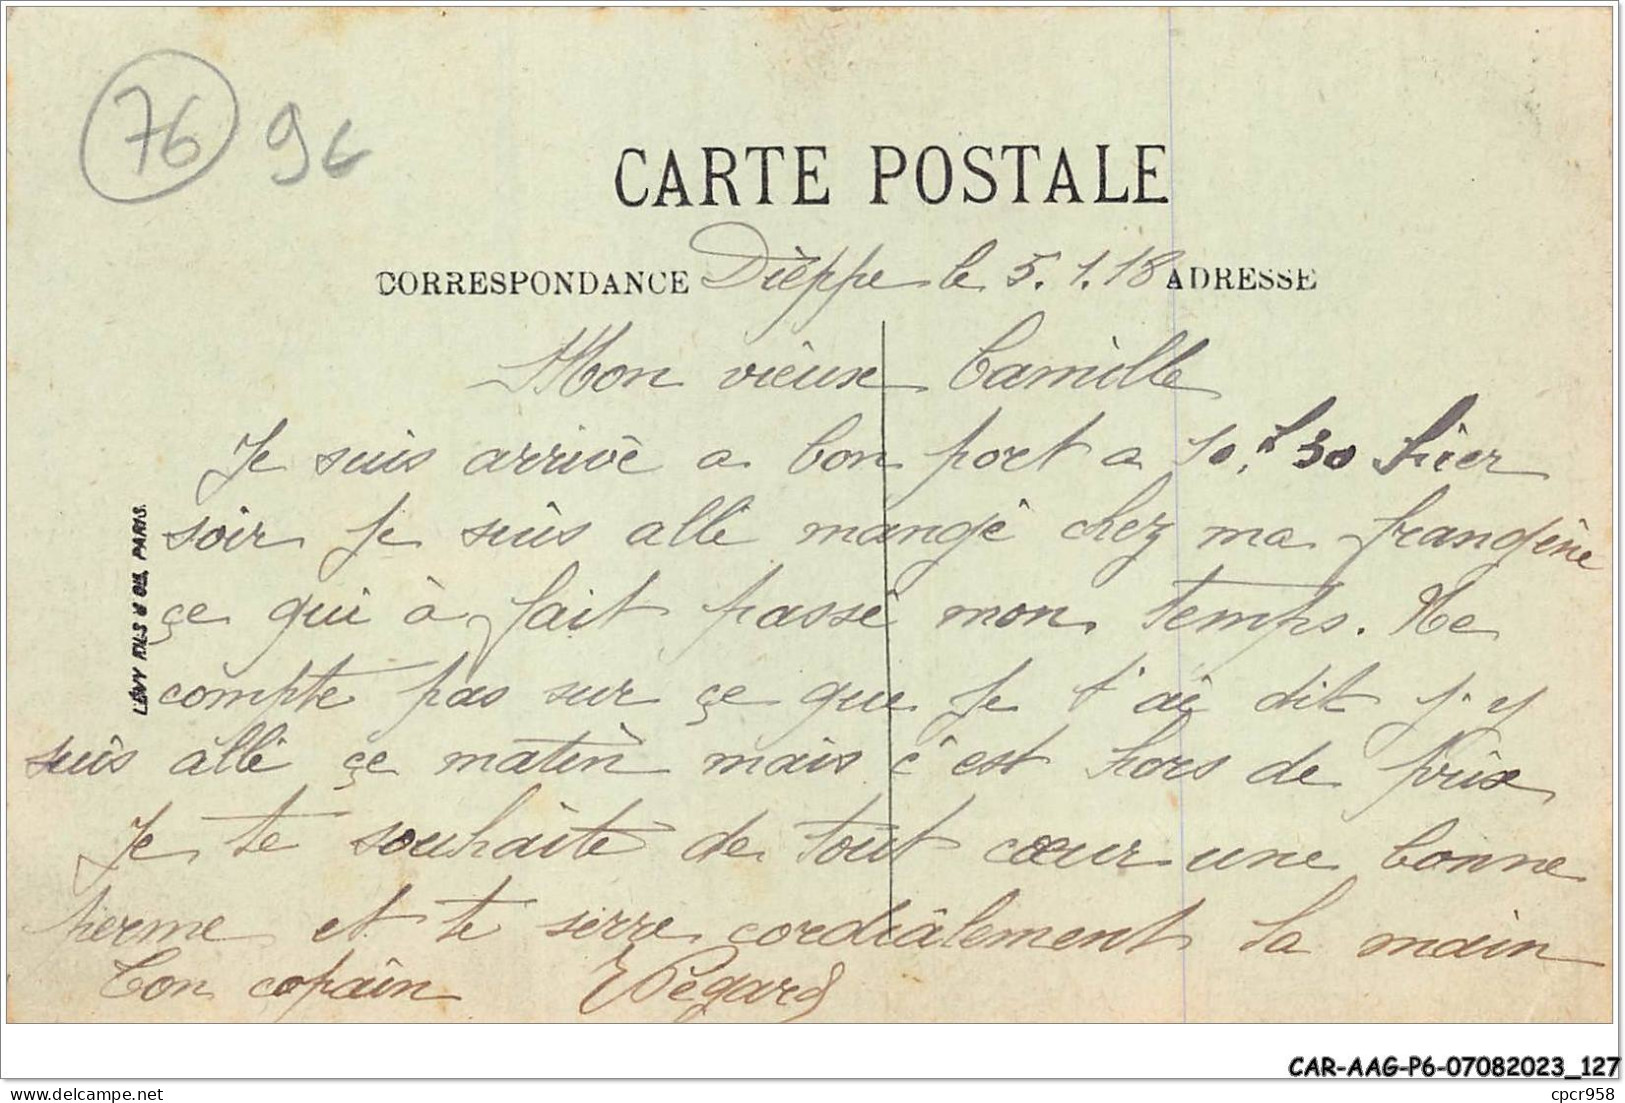 76 96
CARTE POSTALE
CORRESPONDANCE Dièppe le 5.1.18 ADRESSE
Mon vieux Camille
Je suis arrivè a bon port a 10.h 30 hier
soir Je suis allè mangè chez ma frangine
çe qui à fait passè mon temps. Ne
compte pas sur çe que Je t'ai dit j'y
suis allè çe matin mais c'est hors de prix
Je te souhaite de tout cœur une bonne
perme et te serre cordiâlement la main
Ton copain Pègard
LÉVY FILS & Cie, PARIS.
CAR-AAG-P6-07082023_127
delcampe.net
cpcr958